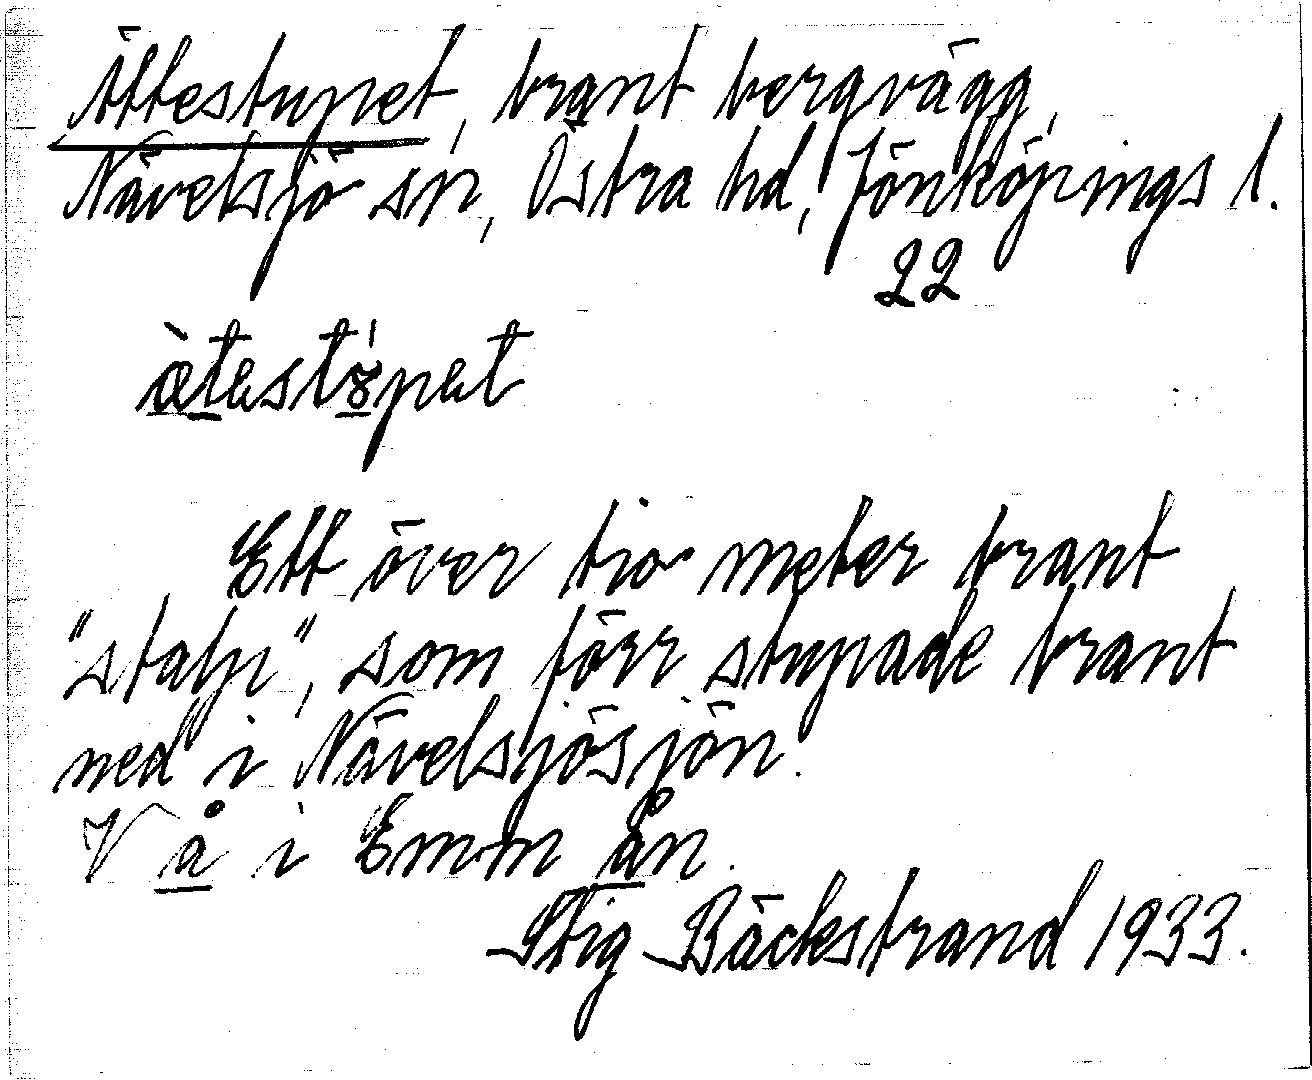 Ättestupet, brant bergvägg,
Nävelsjö sn, Östra hd, Jönköpings l.
22
Ett över tio meter brant
"stalp", som förr stupade brant
ned i Nävelsjösjön.
V å i Emm ån.
Stig Bäckstrand 1933.